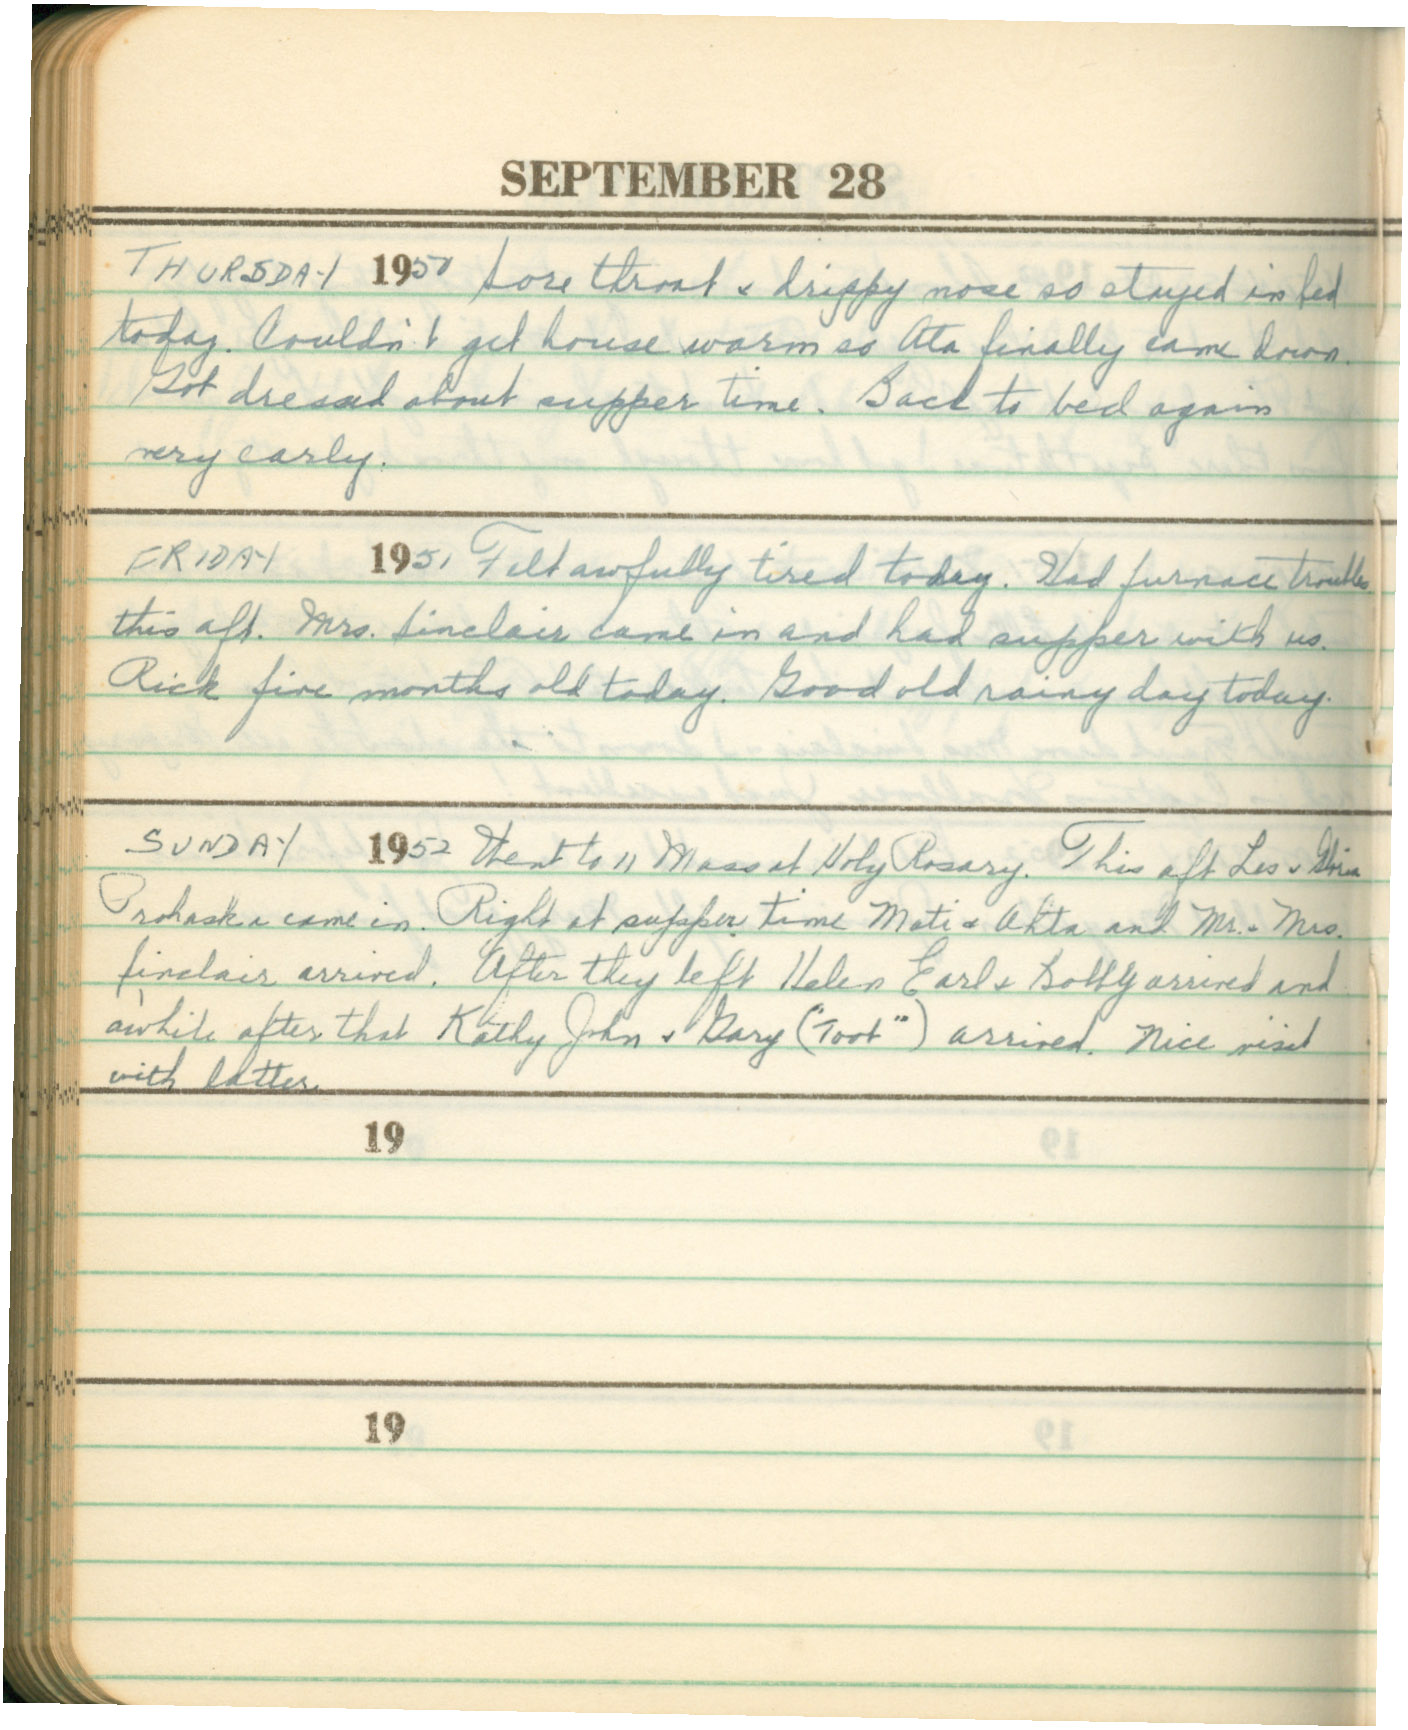 SEPTEMBER 28
THURSDAY 1950 Sore throat & drippy nose so stayed in bed
today. Couldn't get house warm so Ata finally came down.
Got dressed about supper time. Back to bed again
very early.
FRIDAY 1951 Felt awfully tired today. Had furnace troubles
this aft. Mrs. Sinclair came in and had supper with us.
Rick five months old today. Good old rainy day today.
SUNDAY 1952 Went to 11 Mass at Holy Rosary. This aft Les &
Prohaska came in. Right at supper time Mati & Ahta and Mr. & Mrs.
Sinclair arrived. After they left Helen Earl & Bobby arrived and
awhile after that Kathy John & Gary ("Toot") arrived. Nice visit
with latter.
19
19